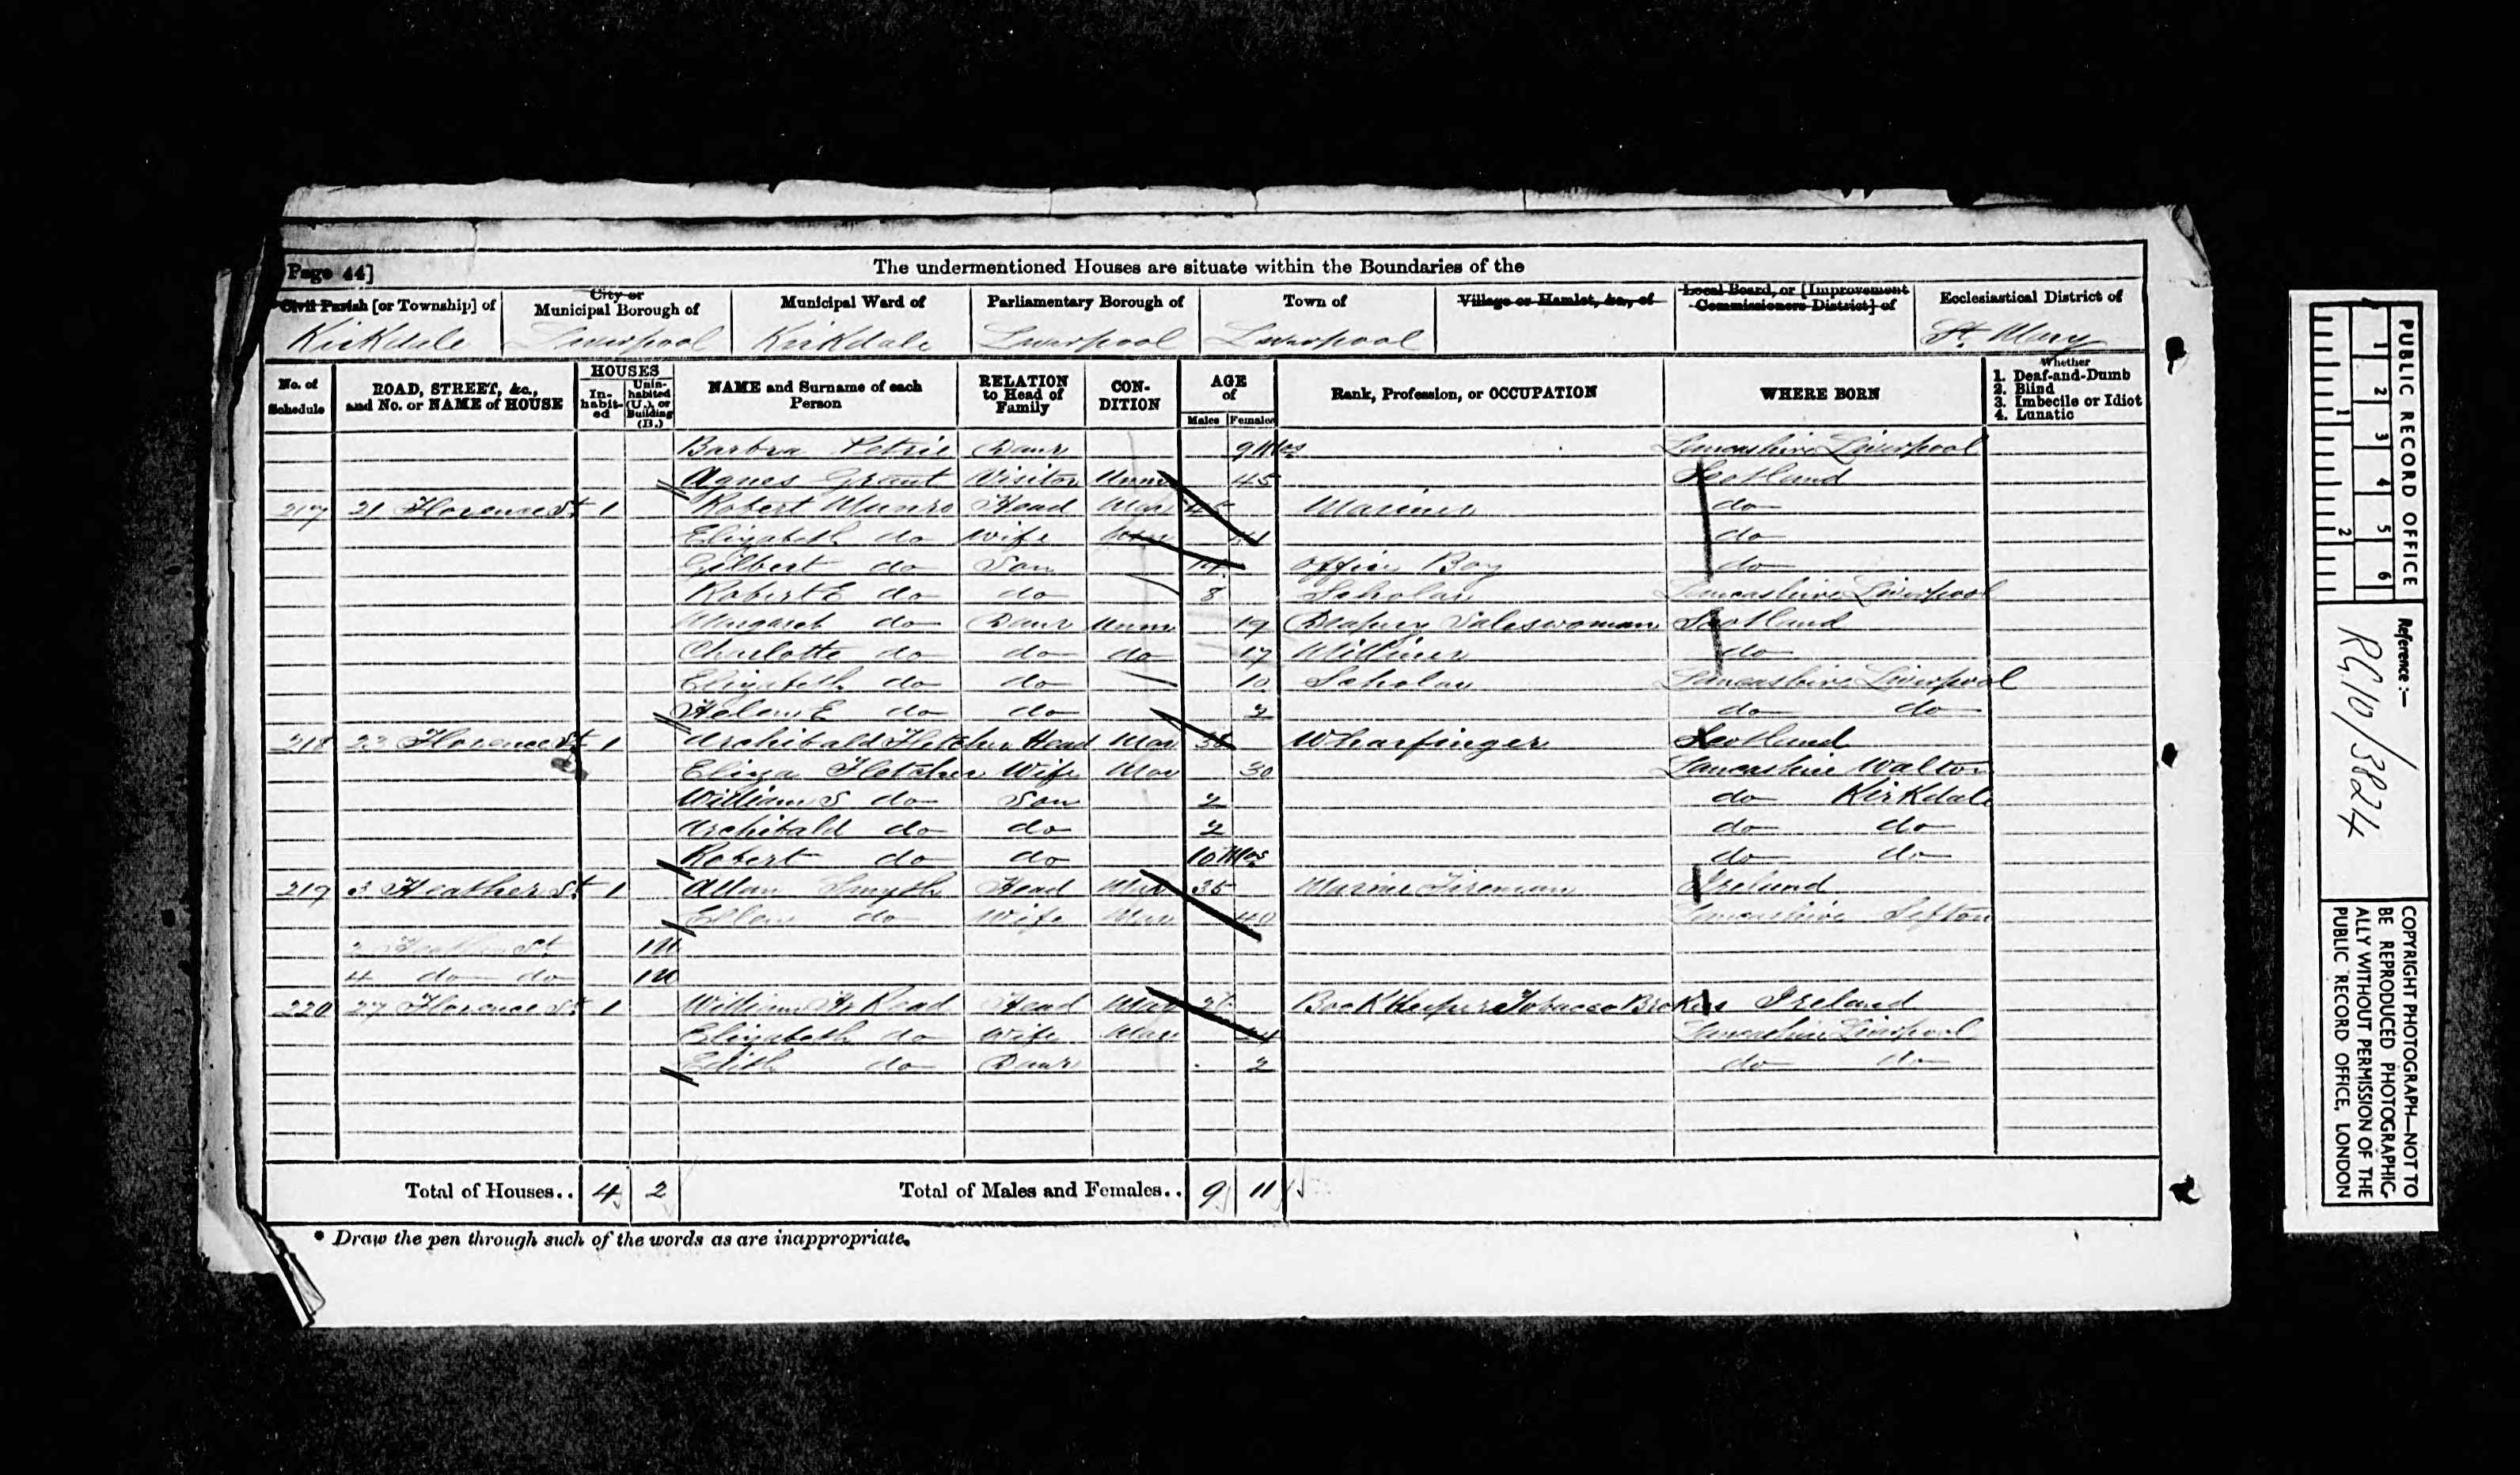 Page 44]
The undermentioned Houses are situate within the Boundaries of the
Civil Parish [or Township] of
City or Municipal Borough of
Municipal Ward of
Parliamentary Borough of
Town of
Village or Hamlet, &c., of
Local Board, or [Improvement Commissioners District] of
Ecclesiastical District of
Kirkdale Liverpool Kirkdale Liverpool Liverpool St. Mary
No. of Schedule
ROAD, STREET, &c., and No. or NAME of HOUSE
HOUSES
In-habit-ed
Unin-habited (U.), or Building (B.)
NAME and Surname of each Person
RELATION to Head of Family
CON-DITION
AGE of
Males Females
Rank, Profession, or OCCUPATION
WHERE BORN
Whether
1. Deaf-and-Dumb
2. Blind
3. Imbecile or Idiot
4. Lunatic
Barbra Petrie Daur 9 Mos Lancashire Liverpool
Agnes Grant Visitor Unm 45 Scotland
217 21 Florence St 1 Robert Munro Head Mar Mariner do
Elizabeth do Wife do
Gilbert do Son 14 Office Boy do
Robert E do do 8 Scholar Lancashire Liverpool
Margaret do Daur Unm 19 Drapery Saleswoman Scotland
Charlotte do do do 17 Milliner do
Elizabeth do do 10 Scholar Lancashire Liverpool
Helen E do do 2 do do
218 23 Florence St 1 Archibald Fletcher Head Mar Wharfinger Scotland
Eliza Fletcher Wife Mar 30 Lancashire Walton
William S do Son 2 do Kirkdale
Archibald do do 2 do do
Robert do do 10 Mos do do
219 3 Heather St 1 Allan Smyth Head Mar 35 Marine Fireman Ireland
Ellen do Wife Mar 40 Lancashire Sefton
2 Heather St 1U
4 do do 1U
220 27 Florence St 1 William H Read Head Mar Book Keeper Tobacco Brokers Ireland
Elizabeth do Wife Mar Lancashire Liverpool
Edith do Daur 2 do do
Total of Houses.. 4 2 Total of Males and Females.. 9 11
* Draw the pen through such of the words as are inappropriate.
PUBLIC RECORD OFFICE
1 2 3 4 5 6
1 2
Reference:-
RG 10/3824
COPYRIGHT PHOTOGRAPH—NOT TO
BE REPRODUCED PHOTOGRAPHIC-
ALLY WITHOUT PERMISSION OF THE
PUBLIC RECORD OFFICE, LONDON